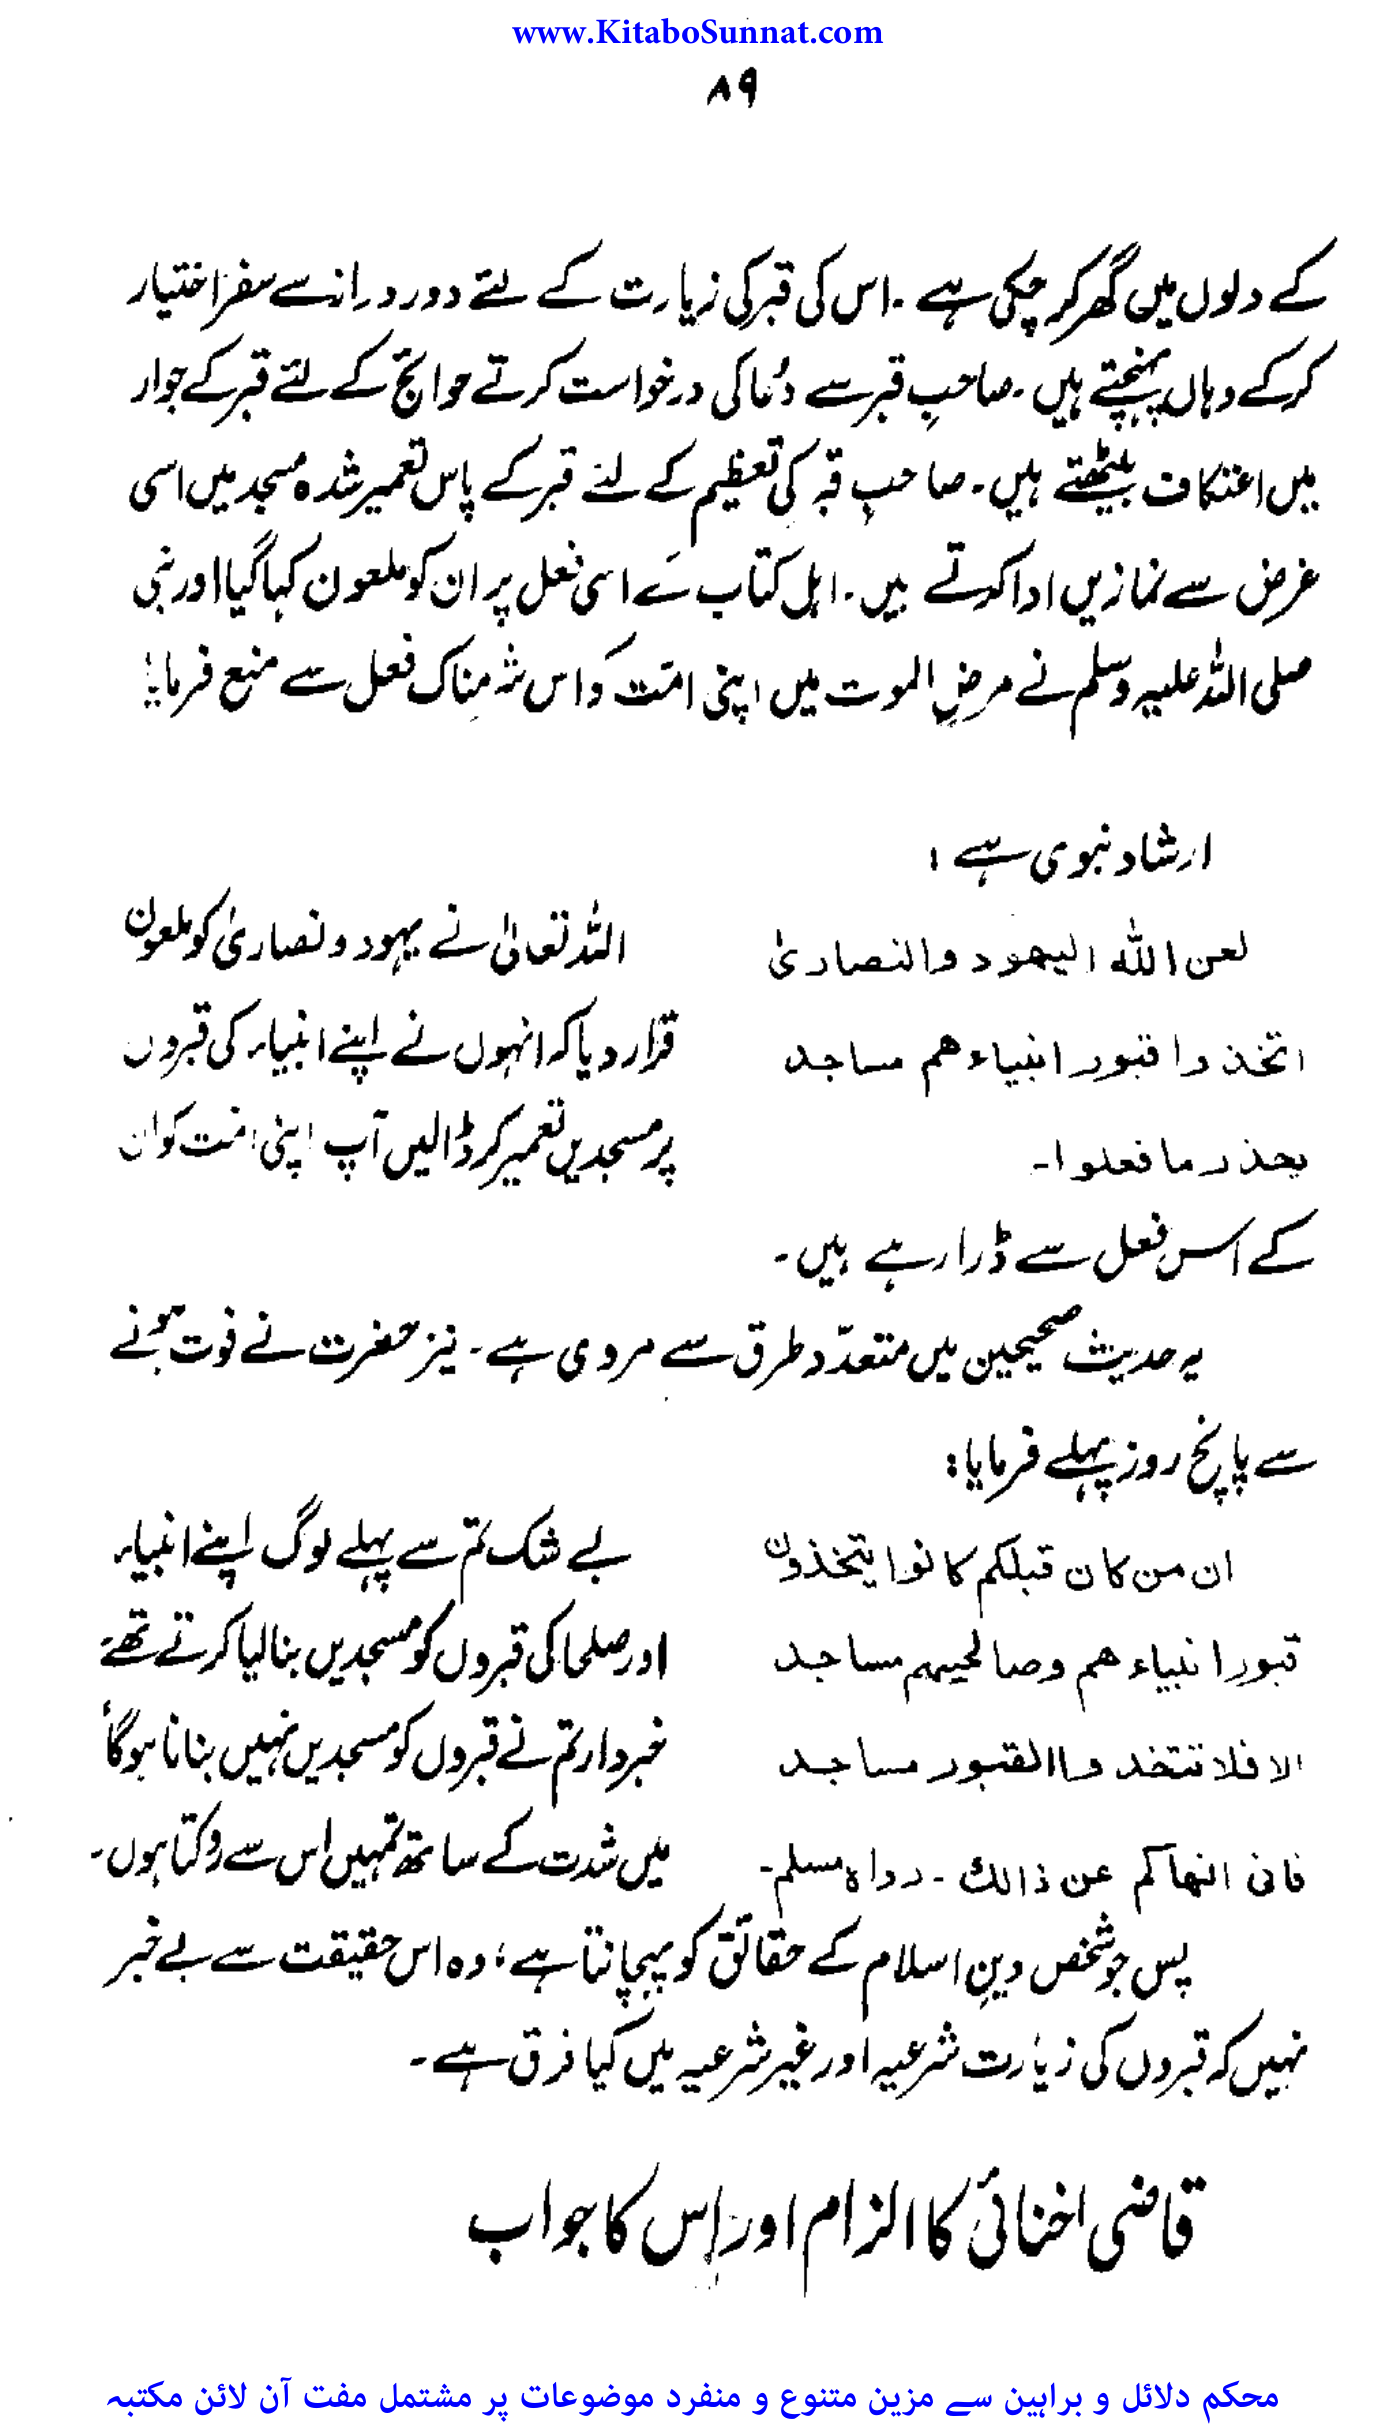 www.KitaboSunnat.com
۸۹
کے دلوں میں گھر کر چکی ہے ۔ اس کی قبر کی زیارت کے لئے دور دراز سے سفر اختیار
کر کے وہاں پہنچتے ہیں ۔ صاحبِ قبر سے دُعا کی درخواست کرتے حوائج کے لئے قبر کے جوار
میں اعتکاف بیٹھتے ہیں ۔ صاحبِ قبر کی تعظیم کے لئے قبر کے پاس تعمیر شدہ مسجد میں اسی
غرض سے نمازیں ادا کرتے ہیں ۔ اہل کتاب کے اسی فعل پر ان کو ملعون کہا گیا اور نبی
صلی اللہ علیہ وسلم نے مرض الموت میں اپنی امّت کو اس شرمناک فعل سے منع فرمایا:
ارشاد نبوی ہے :
لعن اللہ الیھود والنصاریٰ اللہ تعالیٰ نے یہود و نصاریٰ کو ملعون
اتخذوا قبور انبیاءھم مساجد قرار دیا کہ انہوں نے اپنے انبیاء کی قبروں
یحذر ما فعلوا۔ پر مسجدیں تعمیر کر ڈالیں آپ اپنی امت کو ان
کے اس فعل سے ڈرا رہے ہیں ۔
یہ حدیث صحیحین میں متعدّد طرق سے مروی ہے ۔ نیز حضرت نے فوت ہونے
سے پانچ روز پہلے فرمایا:
ان من کان قبلکم کانوا یتخذون بے شک تم سے پہلے لوگ اپنے انبیاء
قبور انبیاءھم وصالحیہم مساجد اور صلحا کی قبروں کو مسجدیں بنا لیا کرتے تھے
الا فلا تتخذوا القبور مساجد خبردار تم نے قبروں کو مسجدیں نہیں بنانا ہوگا
فانی انھاکم عن ذالک ۔ رواہ مسلم۔ میں شدت کے ساتھ تمہیں اس سے روکتا ہوں۔
پس جو شخص دینِ اسلام کے حقائق کو پہچانتا ہے؛ وہ اس حقیقت سے بے خبر
نہیں کہ قبروں کی زیارت شرعیہ اور غیر شرعیہ میں کیا فرق ہے ۔
قاضی اخنائی کا الزام اور اس کا جواب
محکم دلائل و براہین سے مزین متنوع و منفرد موضوعات پر مشتمل مفت آن لائن مکتبہ